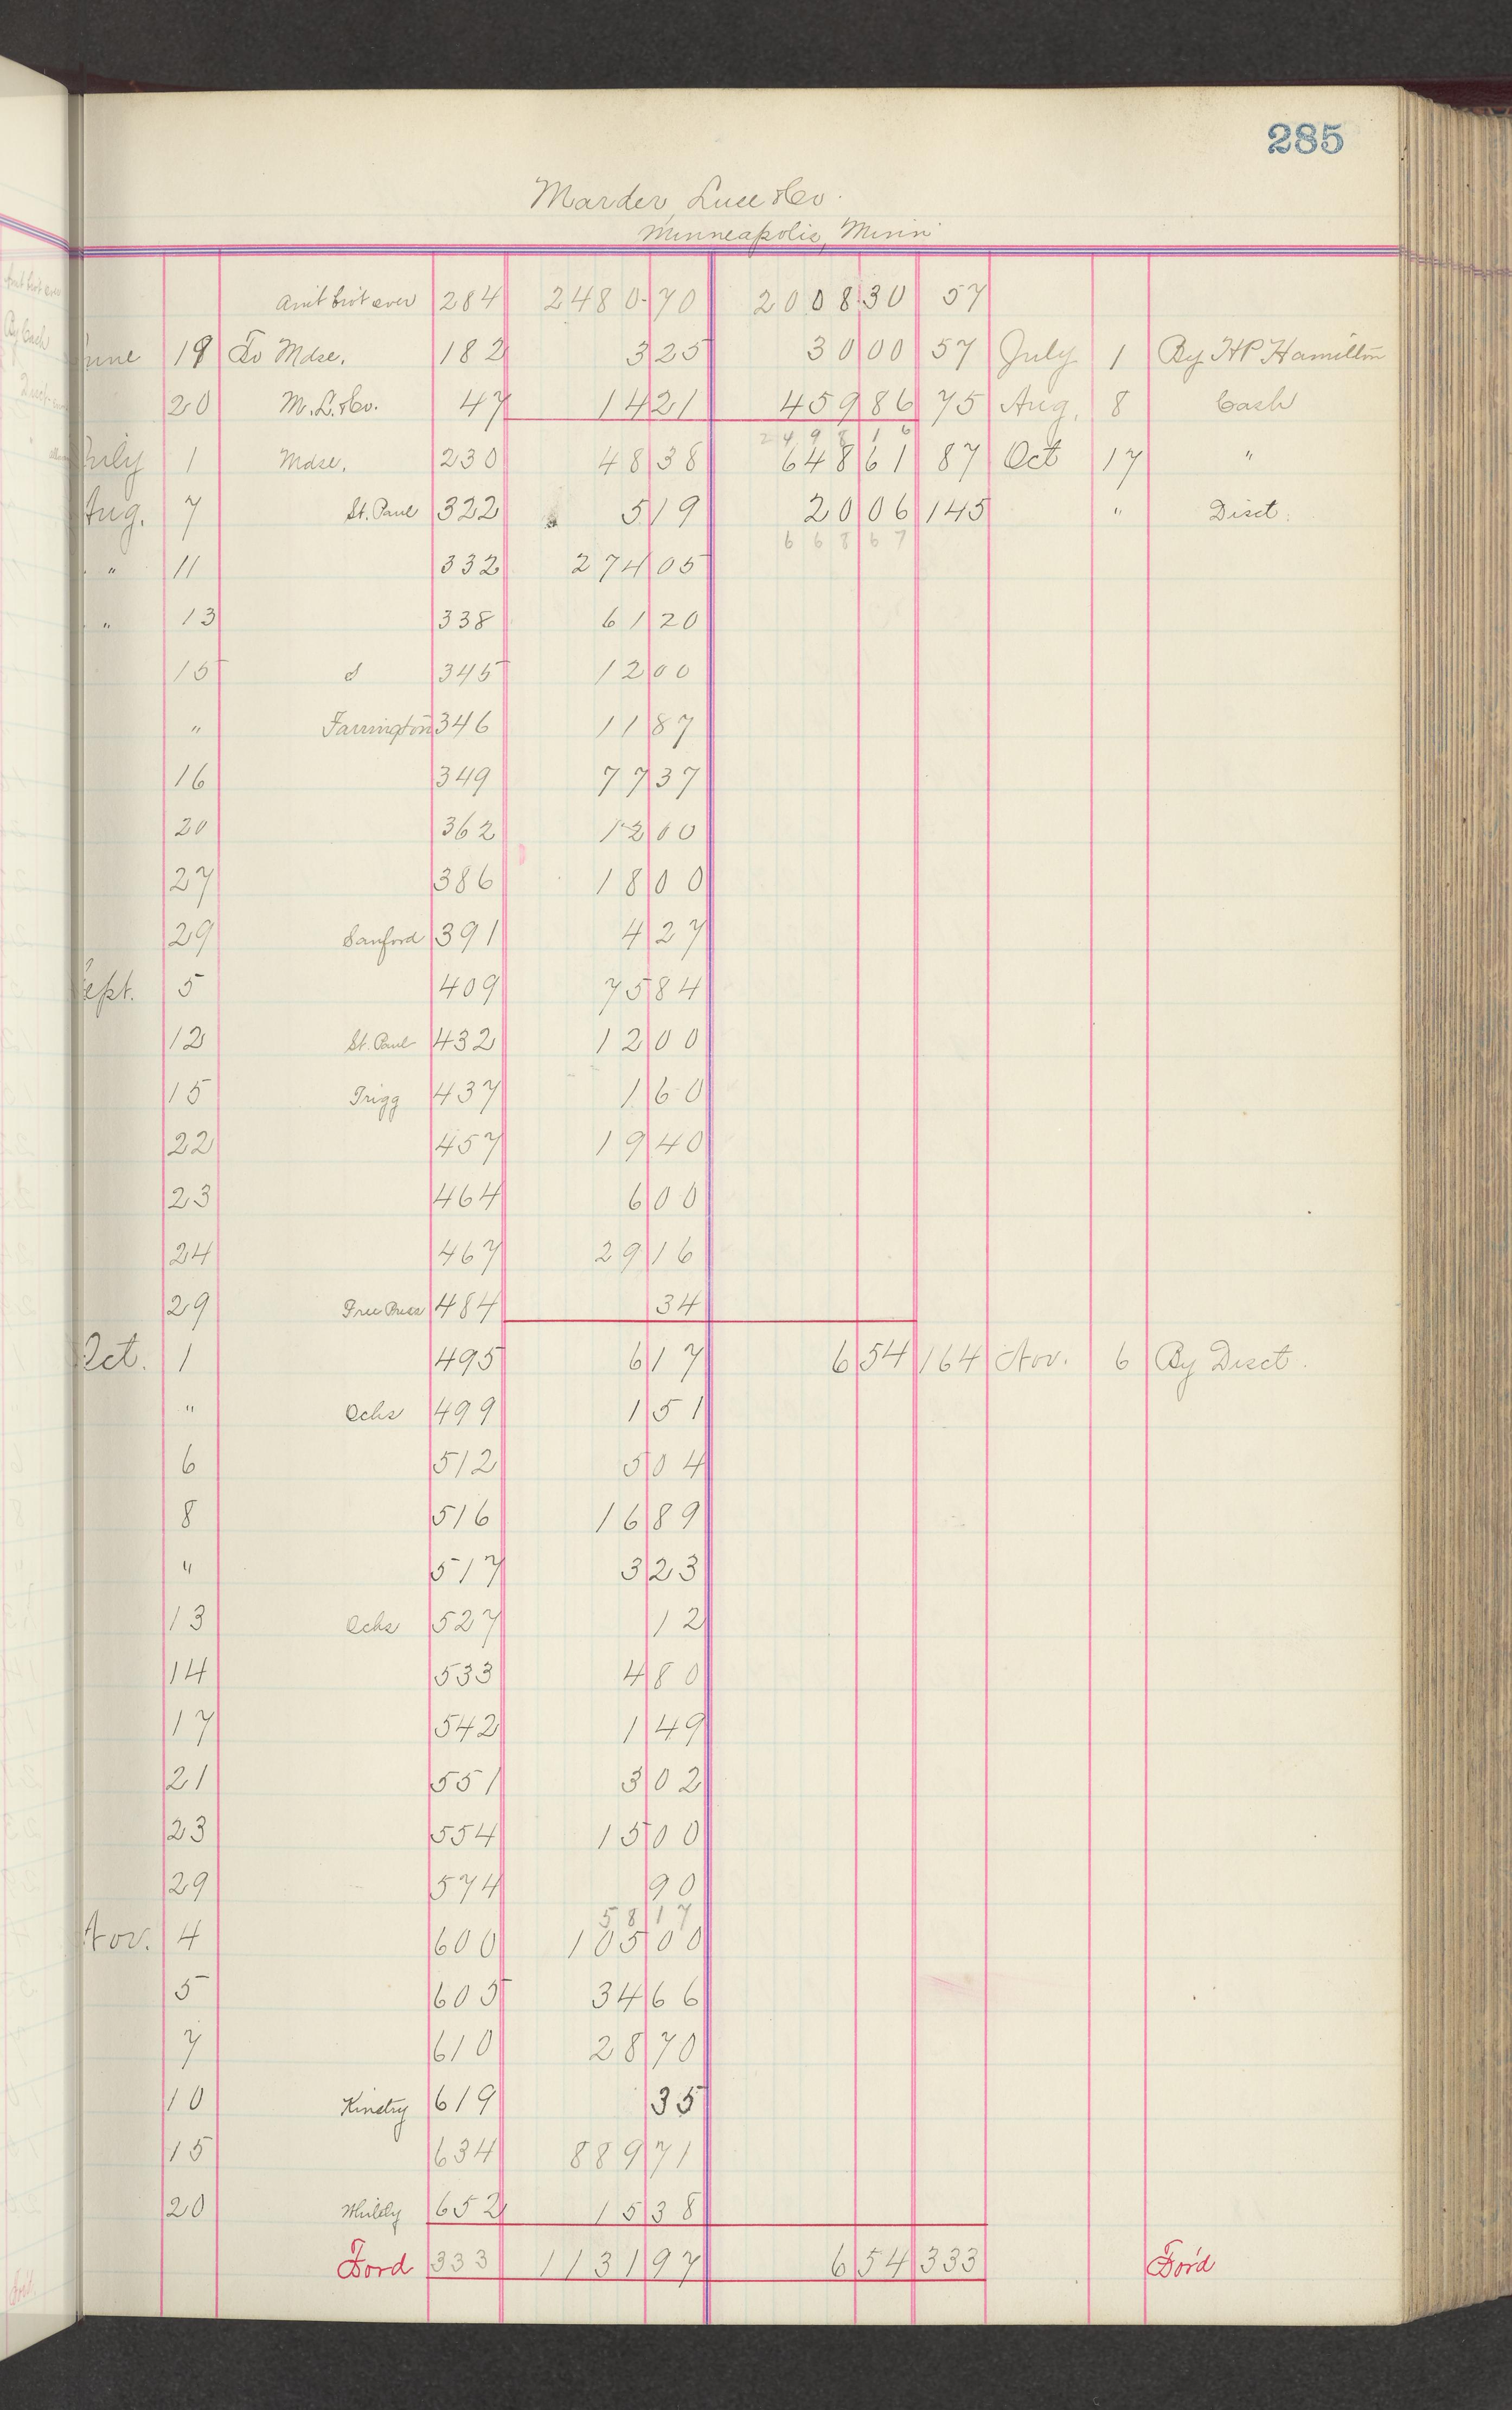 285
Marder, Luce & Co.
Minneapolis, Minn
Am't bro't over 284 2480 70 2008 30 57
June 19 To Mdse. 182 3 25 30 00 57 July 1 By HP Hamilton
20 M. L. & Co. 47 14 21 459 86 75 Aug. 8 Cash
2498 16
July 1 Mdse. 230 48 38 648 61 87 Oct 17 "
Aug. 7 St. Paul 322 5 19 20 06 145 " Disct.
668 67
" 11 332 274 05
" 13 338 61 20
15 345 12 00
" Farrington 346 11 87
16 349 77 37
20 362 12 00
27 386 18 00
29 Sanford 391 4 27
Sept. 5 409 75 84
12 St. Paul 432 12 00
15 Trigg 437 1 60
22 457 19 40
23 464 6 00
24 467 29 16
29 Free Press 484 34
Oct. 1 495 6 17 6 54 164 Nov. 6 By Disct.
" Ochs 499 1 51
6 512 5 04
8 516 16 89
" 517 3 23
13 Ochs 527 12
14 533 4 80
17 542 1 49
21 551 3 02
23 554 15 00
29 574 90
58 17
Nov. 4 600 105 00
5 605 34 66
7 610 28 70
10 619 35
15 634 889 71
20 652 15 38
Ford 333 1131 97 6 54 333 For'd